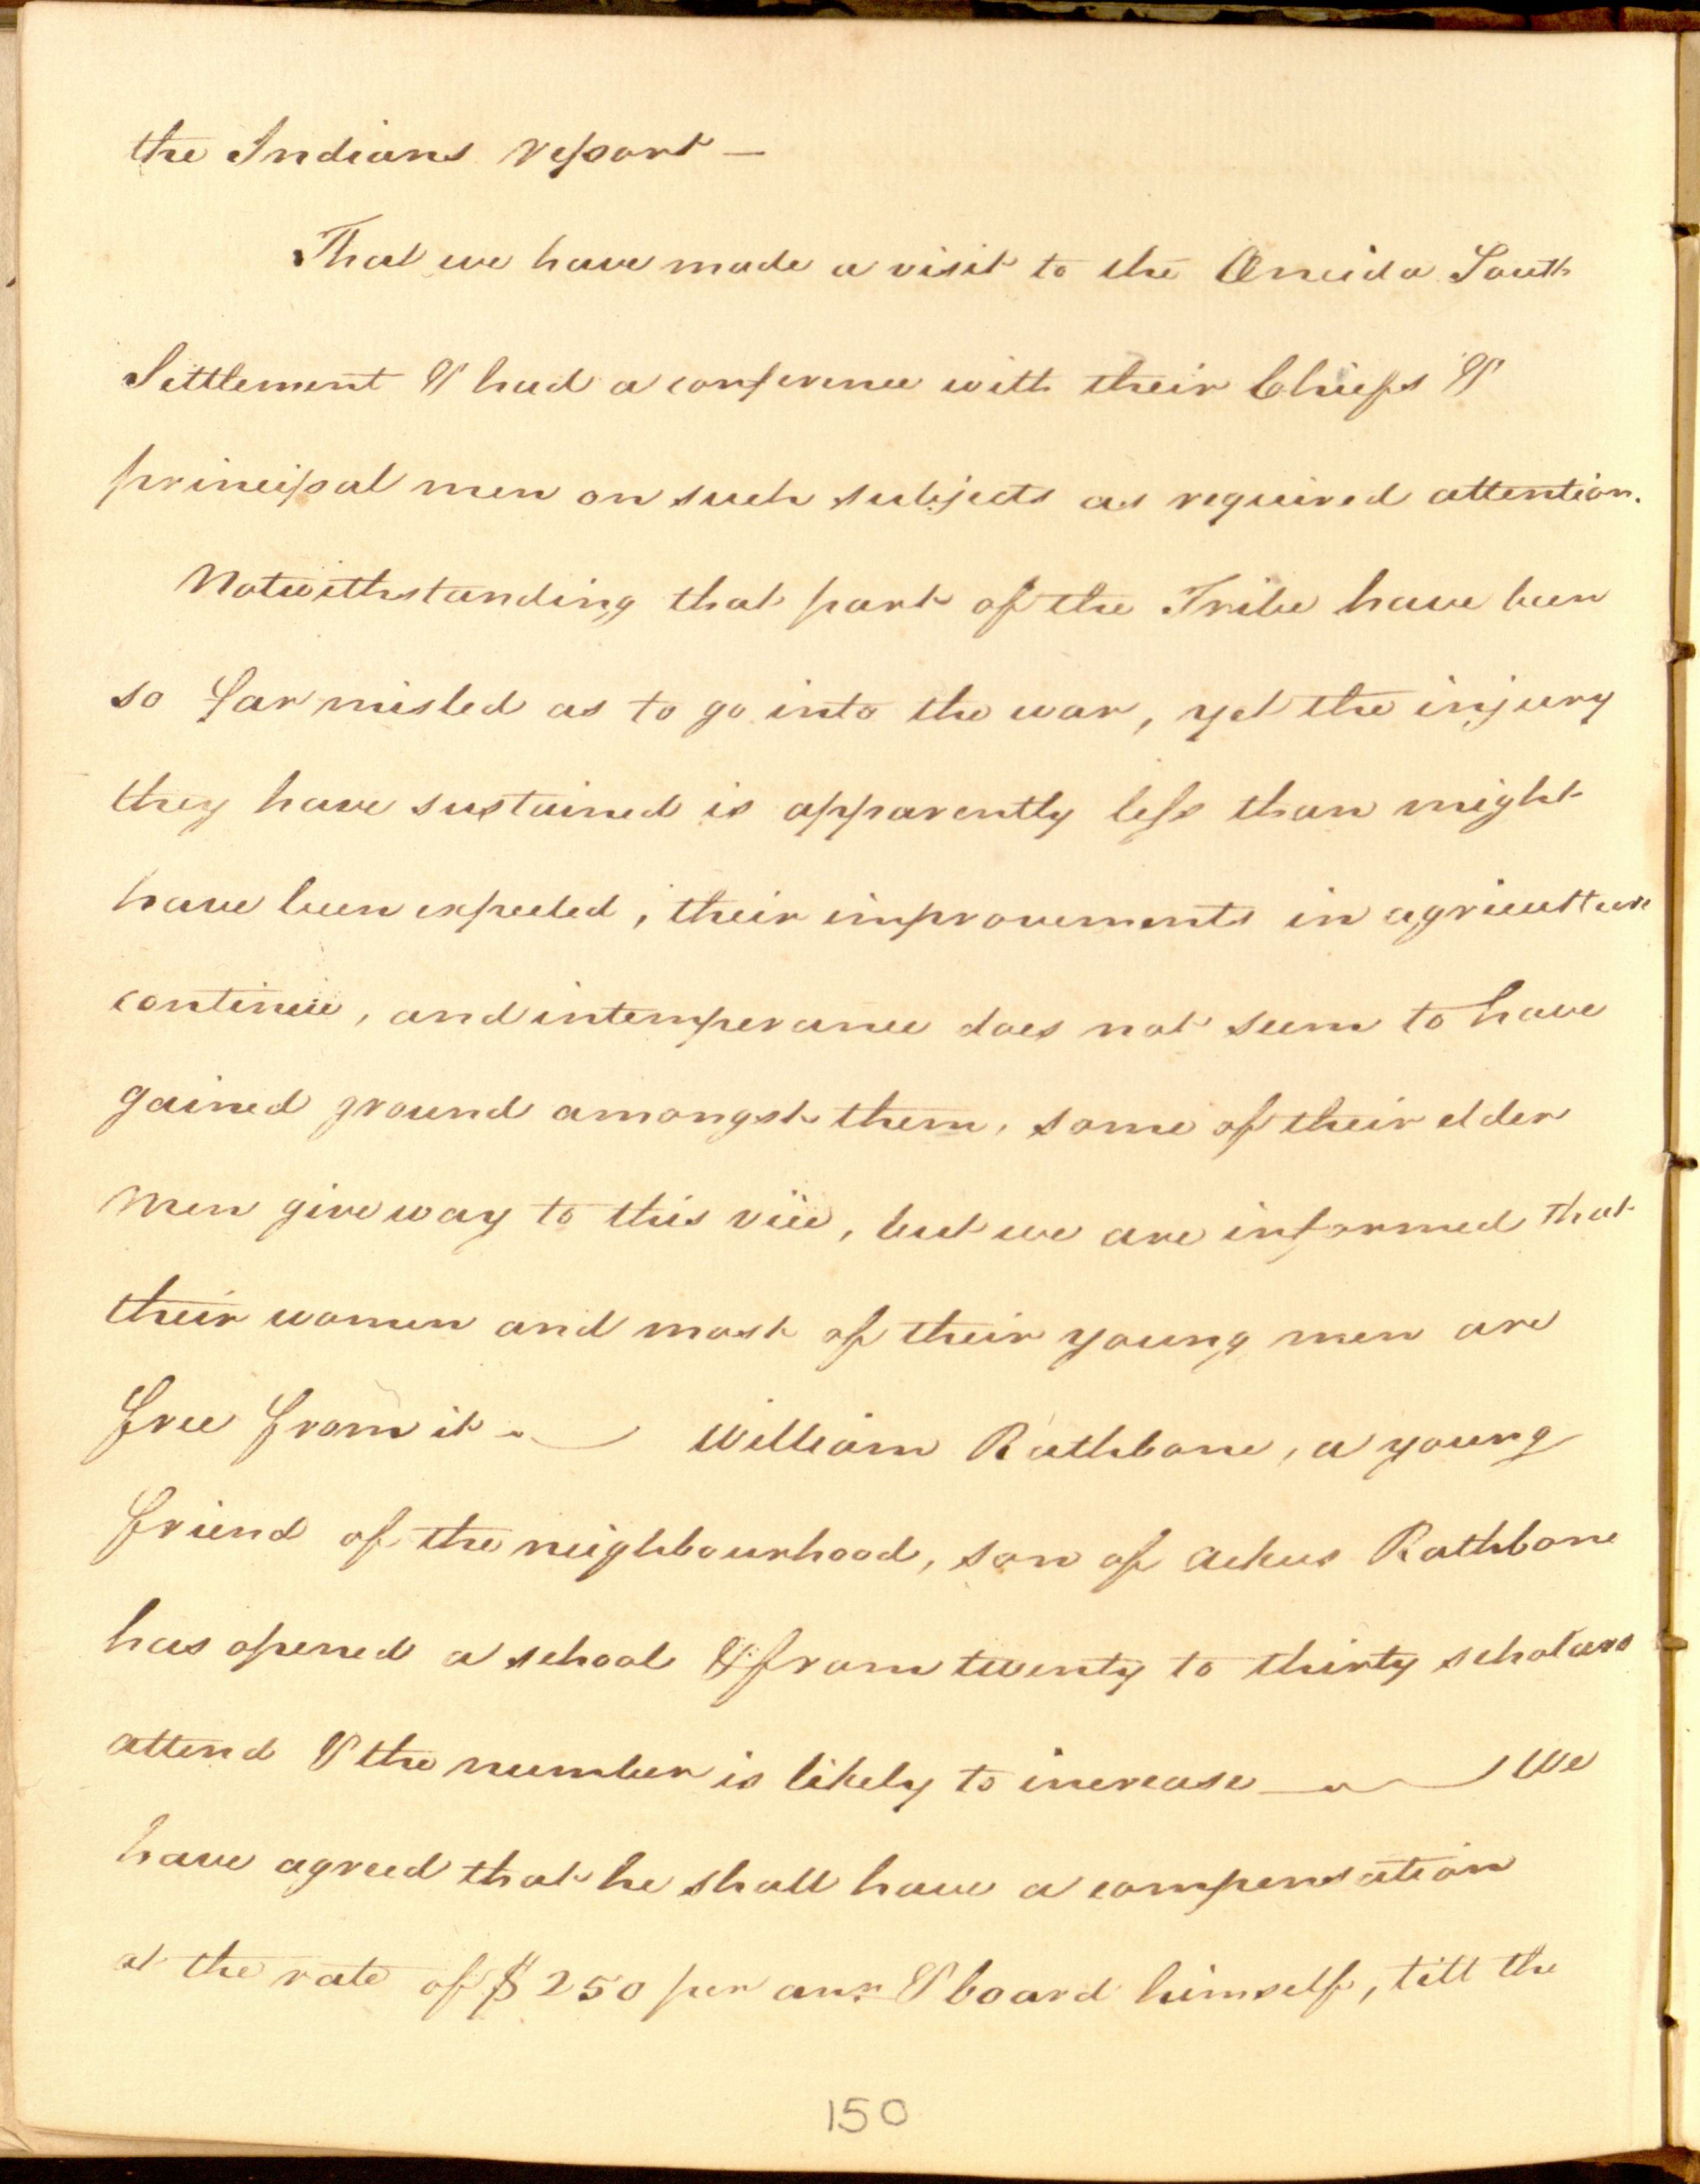 the Indians report —
That we have made a visit to the Oneida South
Settlement & had a conference with their Chiefs &
principal men on such subjects as required attention.
Notwithstanding that part of the Tribe have been
so far misled as to go into the war, yet the injury
they have sustained is apparently less than might
have been expected, their improvements in agriculture
continue, and intemperance does not seem to have
gained ground amongst them, some of their elder
men give way to this vice, but we are informed that
their women and most of their young men are
free from it — William Rathbone, a young
friend of the neighbourhood, son of Rathbone
has opened a school & from twenty to thirty scholars
attend & the number is likely to increase — We
have agreed that he shall have a compensation
at the rate of $250 per ann. & board himself, till the
150